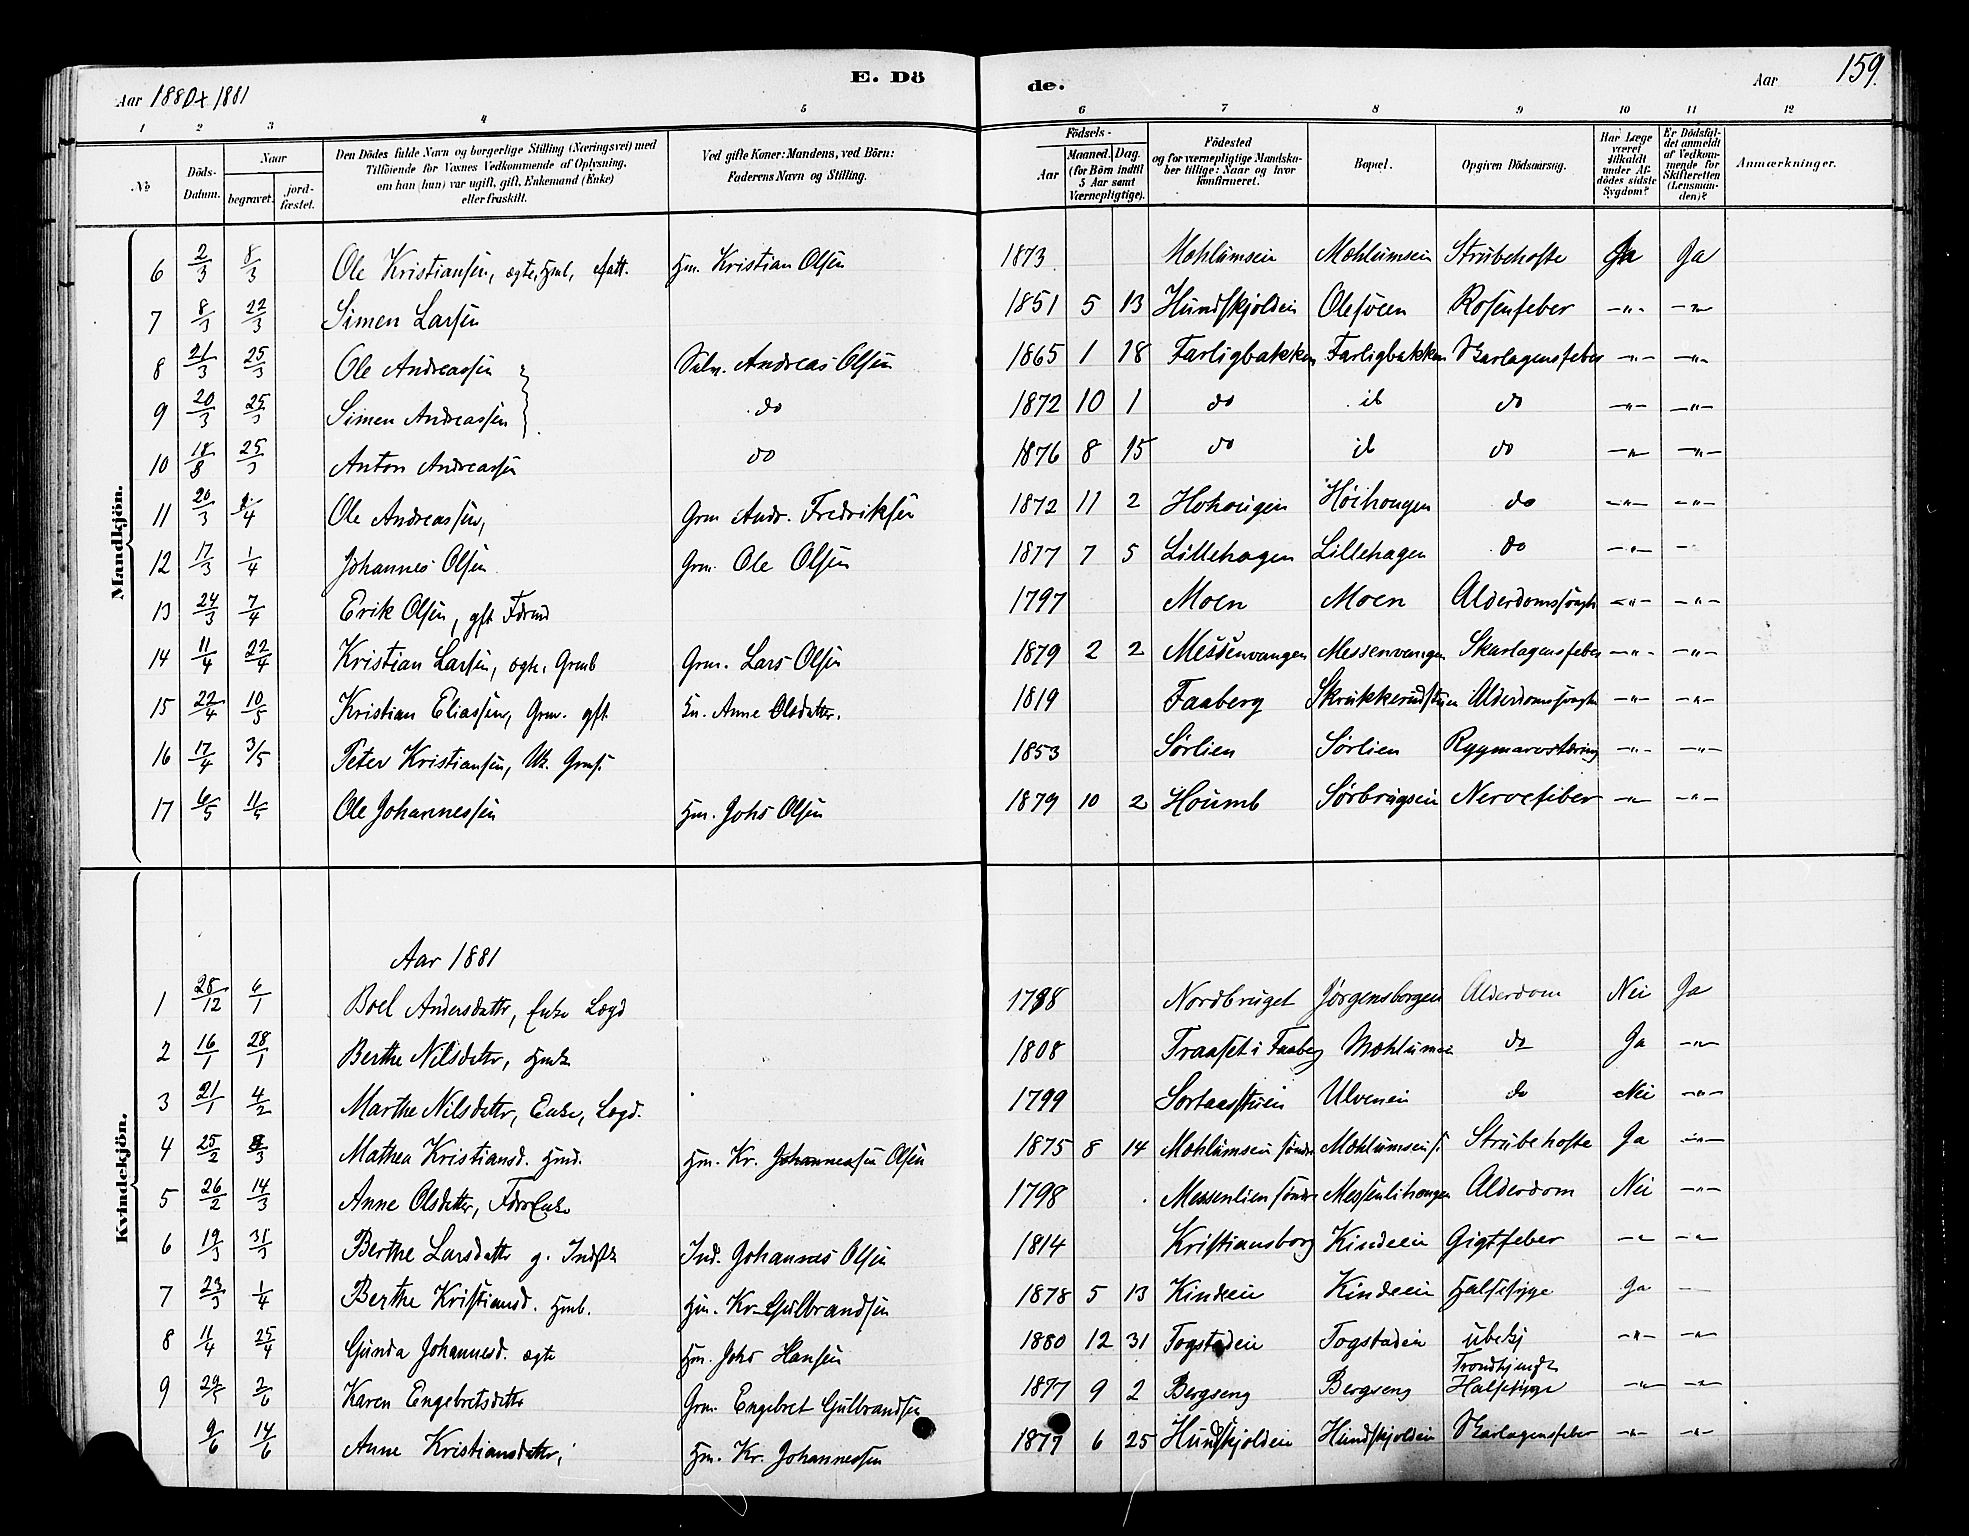 Aar 1880 & 1881
E. Dö
de.
Aar
159.
1 2 3 4 5 6 7 8 9 10 11 12
No
Döds-Datum.
Naar
begravet.
jord-fæstet.
Den Dödes fulde Navn og borgerlige Stilling (Næringsvei) med
Tilföiende for Voxnes Vedkommende af Oplysning,
om han (hun) var ugift, gift, Enkemand (Enke)
eller fraskilt.
Ved gifte Koner: Mandens, ved Börn:
Faderens Navn og Stilling.
Födsels-
Aar
Maaned. Dag.
(for Börn indtil
5 Aar samt
Værnepligtige).
Födested
og for værnepligtige Mandska-
ber tillige: Naar og hvor
konfirmeret.
Bopæl.
Opgiven Dödsaarsag.
Har Læge
været
tilkaldt
under Af-
dödes sidste
Sygdom?
Er Dödsfal-
det anmeldt
af Vedkom-
mende for
Skifteretten
(Lensman-
den)?
Anmærkninger.
Mandkjön.
6 2/3 8/3 Ole Kristiansen, ægte, Hmb, Hm. Kristian Olsen 1873 Mæhlumseie Mæhlumseie Strubehoste Ja Ja
7 8/3 22/3 Simen Larsen 1851 5 13 Hundskjoldeie Olesveen Rosenfeber -"- -"-
8 21/3 25/3 Ole Andreassen Andreas Olsen 1865 1 18 Farligbakken Farligbakken Skarlagensfeber -"- -"-
9 20/3 25/3 Simen Andreassen do 1872 10 1 do do -"- -"-
10 18/8 25/3 Anton Andreassen do 1876 8 15 do do -"- -"-
11 20/3 1/4 Ole Andreassen, Grm Andr. Fredriksen 1872 11 2 Hohougen Höihougen do -"- -"-
12 17/3 1/4 Johannes Olsen Grm. Ole Olsen 1877 7 5 Lillehagen Lillehagen do -"- -
13 24/3 7/4 Erik Olsen, gft Fdrmd 1797 Moen Moen Alderdomssvagh -"- -"-
14 11/4 22/4 Kristian Larsen, ægte, Grmb Grm. Lars Olsen 1879 2 2 Messenvangen Messenvangen Skarlagensfeber -"- -"-
15 22/4 10/5 Kristian Eliassen, Grm. gft. Anne Olsdatter. 1819 Faaberg Skrukkerudstuen Alderdomssvagh -"- -"-
16 17/4 3/5 Peter Kristiansen, Uk. Grms. 1853 Sørlien Sørlien Rygmarvstæring -"- -"-
17 6/5 11/5 Ole Johannessen Hm. Johs Olsen 1879 10 2 Houmb Sørbrugseie Nervefeber -"- -"-
Kvindekjön.
Aar 1881
1 28/12 6/1 Boel Andersdatter, Enke Lægd 1788 Nordbruget Jørgensborgeie Alderdom Nei Ja
2 16/1 28/1 Berthe Nilsdatter, Hmk 1808 Traaset i Faaberg Mæhlumeie do Ja -"-
3 21/1 4/2 Marthe Nilsdatter, Enke, Lægd. 1799 Sortaasstuen Ulveneie do Nei -"-
4 25/2 8/3 Mathea Kristiansd. Hmd. Hm. Kr. Johannessen Olsen 1875 8 14 Mæhlumseie søndre Mæhlumseie s. Strubehoste Ja -"-
5 26/2 14/3 Anne Olsdatter, FdrEnke 1798 Messenlien søndre Messenlihougen Alderdom Nei -"-
6 19/3 31/3 Berthe Larsdatter g. Indstk Ind. Johannes Olsen 1814 Kristiansborg Kindeeie Gigtfeber -"- -"-
7 23/3 1/4 Berthe Kristiansd. Hmb. Hm. Kr. Gulbrandsen 1878 5 13 Kindeeie Kindeeie Halssyge Ja -
8 11/4 25/4 Gunda Johannesd. ægte Hm. Johs Hansen 1880 12 31 Togstadeie Togstadeie ubekj -"- -"-
9 29/5 2/6 Karen Engebretsdatter Grm. Engebret Gulbrandsen 1877 9 2 Bergseng Bergseng Trondhjemske Halssyge -"- -"-
9/6 14/6 Anne Kristiansdatter, Hm. Kr. Johannessen 1877 6 25 Hundskjoldeie Hundskjoldeie Skarlagensfeber -"- -"-